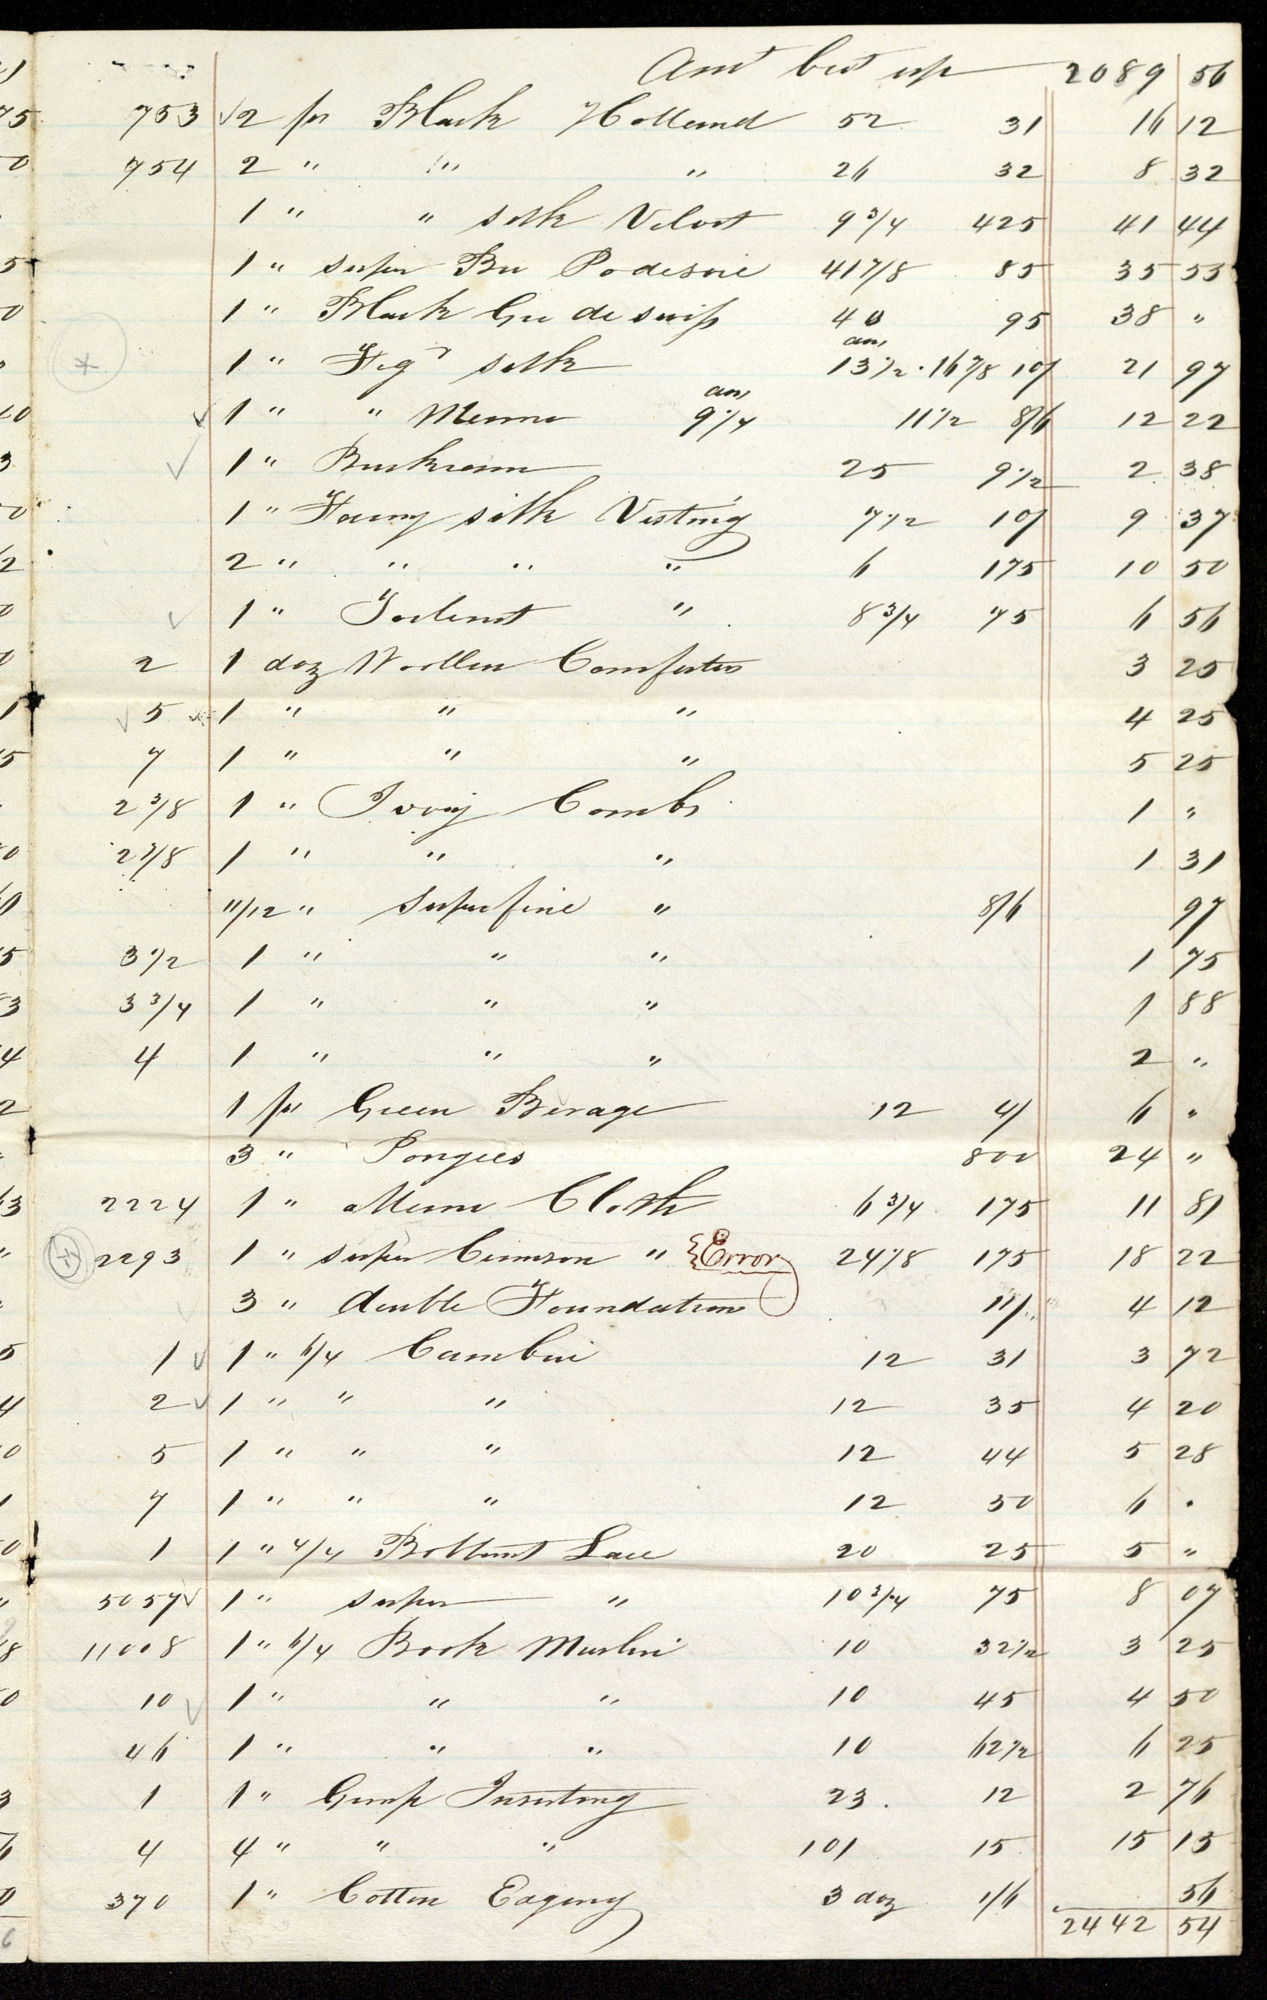 Amt brt up 2089 56
753 2 ps Black Holland 52 31 16 12
754 2 " " " 26 32 8 32
1 " " silk Velvet 9 3/4 425 41 44
1 " super Blu Podesoie 41 7/8 85 35 53
1 " Black Gro de swiss 40 95 38 "
1 " Fig'd silk 13 1/2 . 16 7/8 10/ 21 97
1 " " Merino 9 1/4 11 1/2 8/6 12 22
1 " Buckram 25 9 1/2 2 38
1 " Fancy silk Vesting 7 1/2 10/ 9 37
2 " " " " 6 175 10 50
1 " Toilinet " 8 3/4 75 6 56
2 1 doz Woollen Comforters 3 25
5 1 " " " 4 25
7 1 " " " 5 25
2 3/8 1 " Ivory Combs 1 "
2 7/8 1 " " " 1 31
11/12 " Superfine " 8/6 97
3 1/2 1 " " " 1 75
3 3/4 1 " " " 1 88
4 1 " " " 2 "
1 ps Green Barage 12 4/ 6 "
3 " Pongees 800 24 "
2224 1 " Merino Cloth 6 3/4 175 11 81
2293 1 " super Crimson " Error 24 7/8 175 18 22
3 " double Foundation 11/ 4 12
1 1 " 6/4 Cambric 12 31 3 72
2 1 " " " 12 35 4 20
5 1 " " " 12 44 5 28
7 1 " " " 12 50 6 "
1 1 " 4/4 Bobbinet Lace 20 25 5 "
5057 1 " super " 10 3/4 75 8 07
11008 1 " 6/4 Book Muslin 10 32 1/2 3 25
10 1 " " " 10 45 4 50
46 1 " " " 10 62 1/2 6 25
1 1 " Gimp Inserting 23 12 2 76
4 4 " " " 101 15 15 15
370 1 " Cotton Edging 3 doz 1/6 56
2442 54